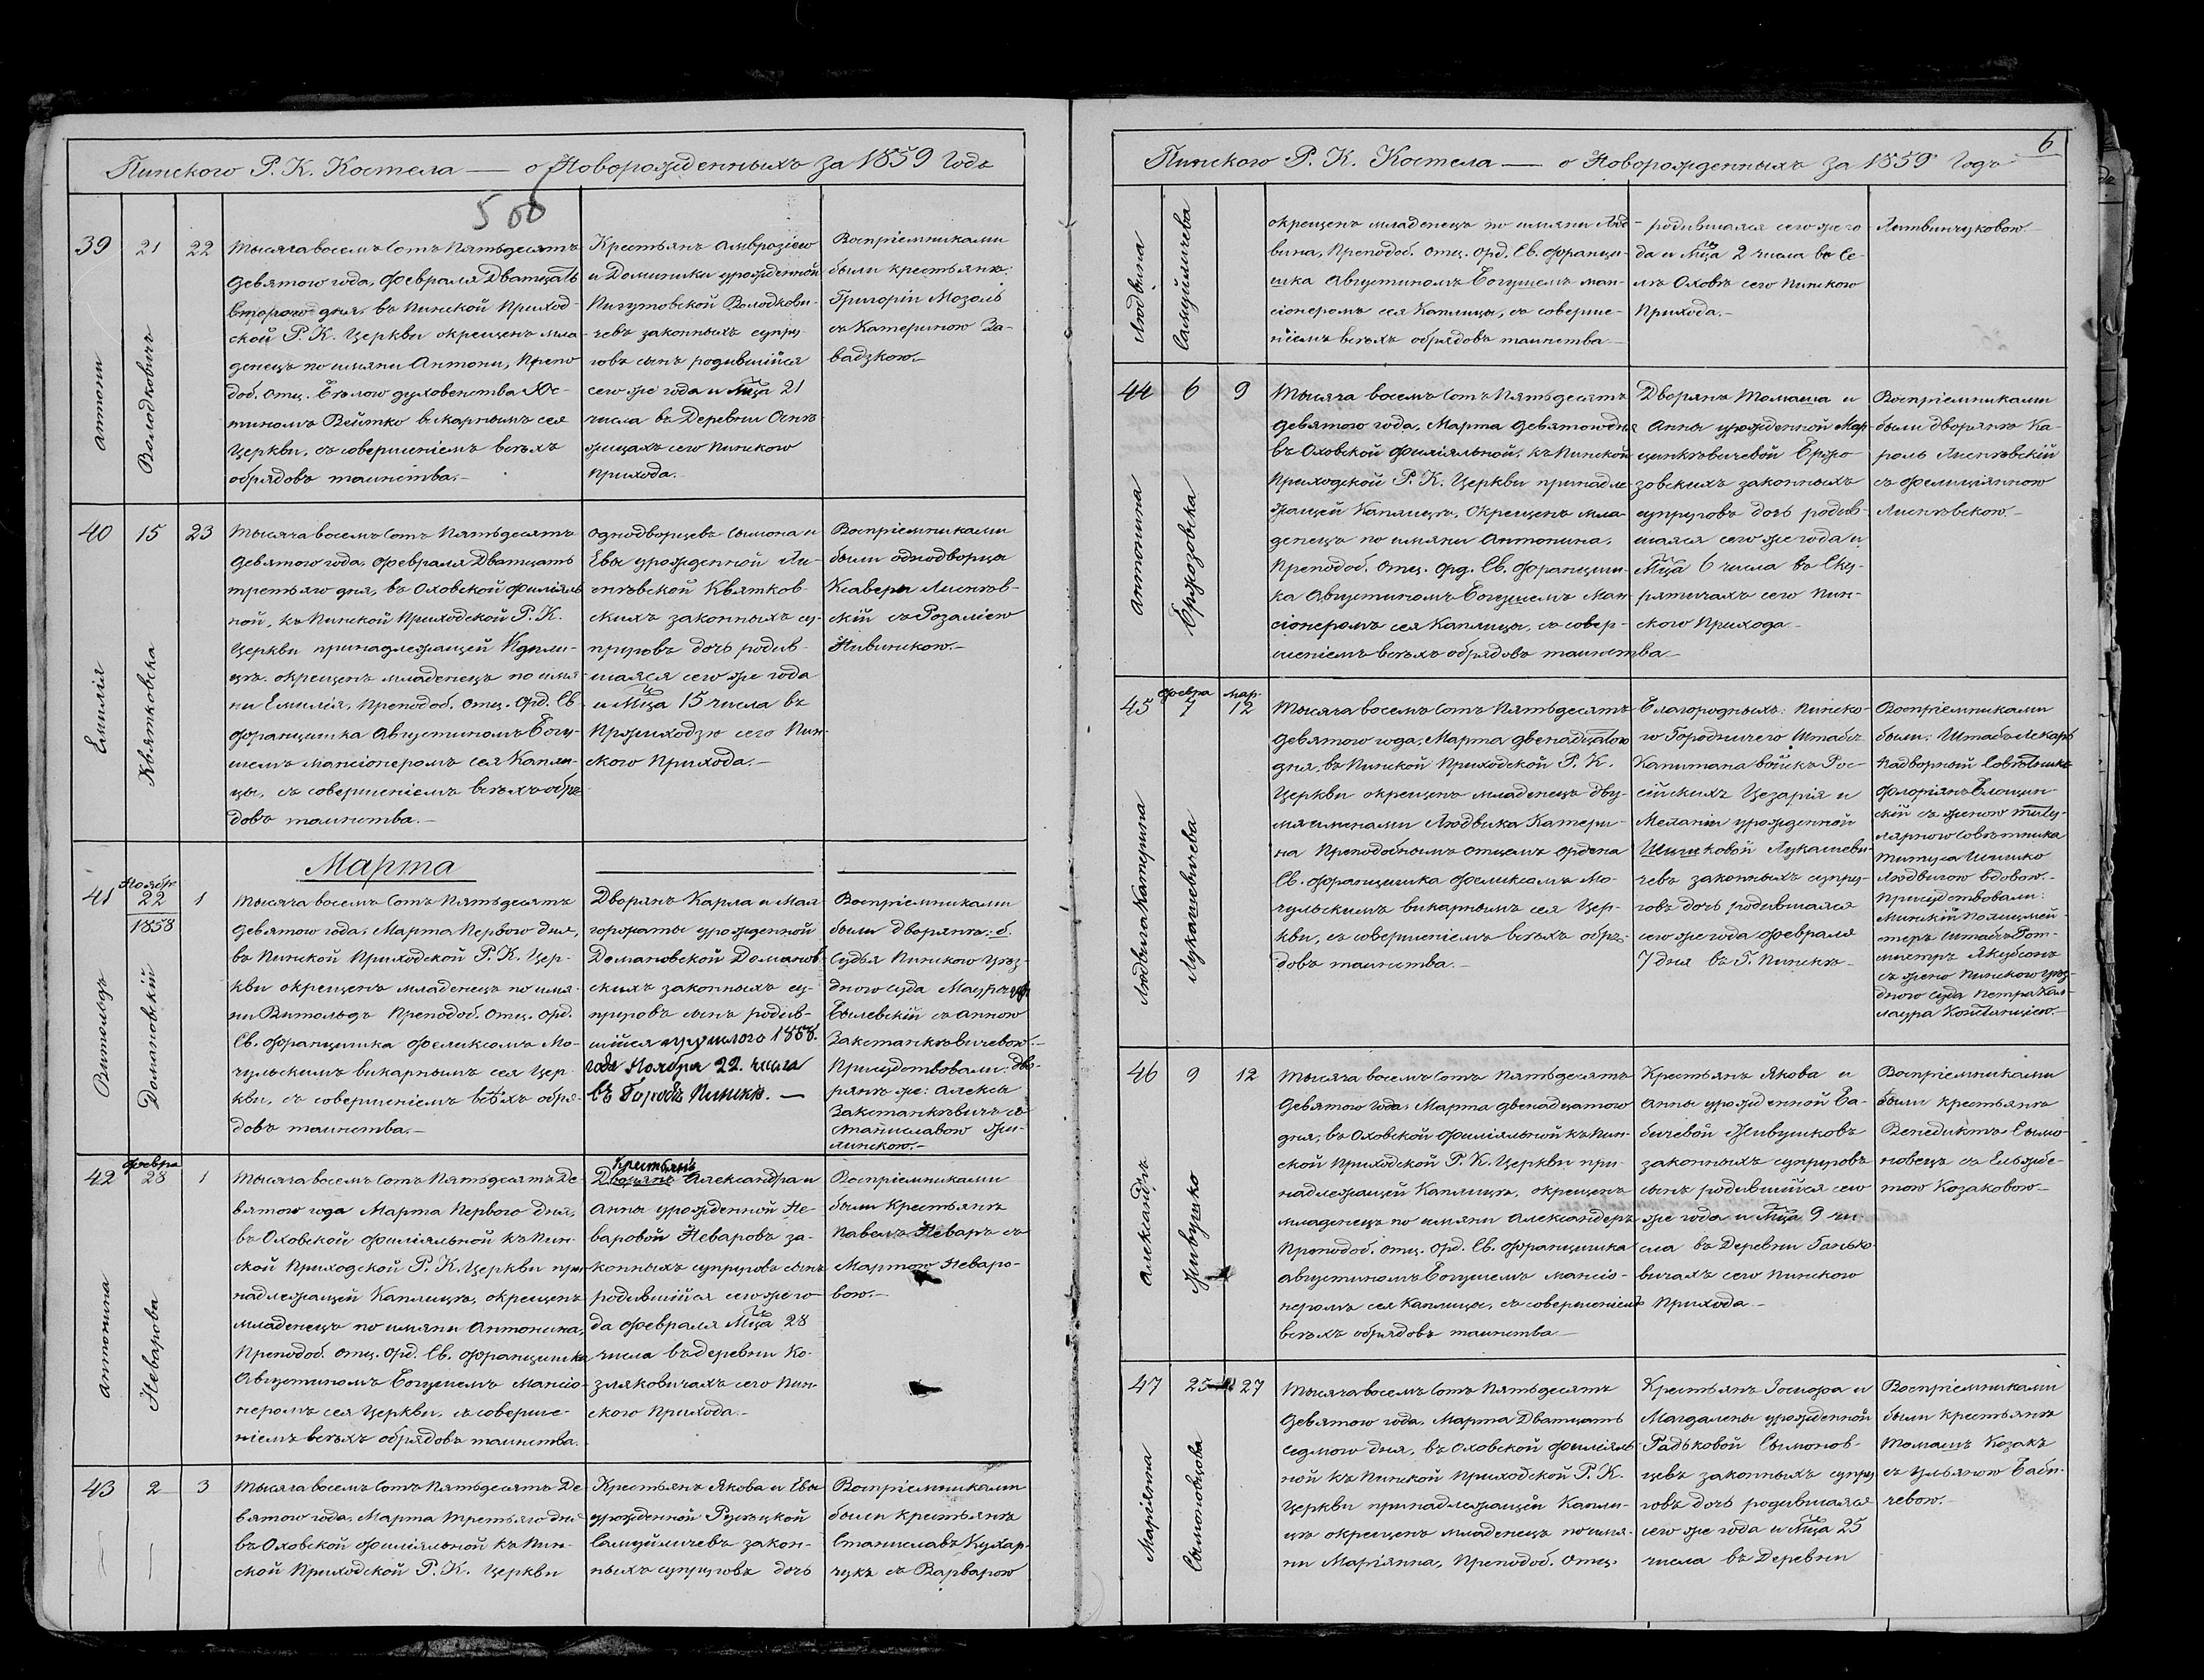 Пинского Р. К. Костела — о Новорожденныхъ за 1859 Годъ
500
39
21
22
Антони
Володковичъ
Тысяча восемъ Сотъ Пятьдесятъ
девятого года, Февраля Дватцать
второго дня, въ Пинской Приход-
ской Р. К. Церкви окрещенъ мла
денецъ по имяни Антони, Препо
доб. Отц. Бѣлого духовенства Юс-
тиномъ Войтко викарнымъ сея
Церкви, съ совершеніемъ всѣхъ
обрядовъ таинства.—
Крестьянъ Амврозіею
и Доминики урожденной
Пигутовской Володкови-
чевъ законныхъ супру
говъ сынъ родившійся
сего же года и Мца 21
числа въ Деревни
сего Пинского
Прихода.
Воспріемниками
были крестьянѣ:
Григорій Мозоль
съ Катериною За-
вадзкою.—
40
15
23
Емилія
Квятковска
Тысяча восемъ Сотъ Пятьдесятъ
девятого года, Февраля Дватцать
третьяго дня, въ Оховской Филіяль
ной, къ Пинской Приходской Р. К.
Церкви принадлежащей Капли-
цѣ окрещенъ младенецъ по имя-
ни Емилія, Преподоб. Отц. Орд. Св
Францишка Августиномъ Богу-
шемъ мансіонеромъ сея Капли-
цы, съ совершеніемъ всѣхъ обря
довъ таинства.—
Однодворцевъ Сымона и
Евы урожденной Ли-
снѣвской Квятков-
скихъ законныхъ су-
пруговъ дочь родив-
шаяся сего же года
и Мца 15 числа въ
сего Пин-
ского Прихода.—
Воспріемниками
были однодворцы
Ксавери Лиснѣв-
скій съ Розаліею
Нивинскою.—
Марта
41
Ноябр.
22
1858
1
Витольдъ
Домановскій
Тысяча восемъ Сотъ Пятьдесятъ
девятого года, Марта Первого дня,
въ Пинской Приходской Р. К. Цер-
кви окрещенъ младенецъ по имя-
ни Витольдъ Преподоб. Отц. Орд.
Св. Францишка Феликсомъ Мо-
чульскимъ викарнымъ сея Цер
кви, съ совершеніемъ всѣхъ обря-
довъ таинства.—
Дворянъ Карла и Мал
горжаты урожденной
Домановской Доманов
скихъ законныхъ су-
пруговъ сынъ родив-
шійся прошлого 1858.
года Ноября 22. числа
въ Городѣ Пинскѣ.—
Воспріемниками
были дворянѣ: б.
Судья Пинского Уѣз-
дного суда
съ Анною
Закстанкѣвичевою.—
Присудствовали: Дво-
рянѣ же: Алексы
Закстанкѣвичъ съ
Станиславою Жи-
линскою.—
42
Февра
28
1
Антонина
Неварова
Тысяча восемъ Сотъ Пятьдесятъ Де
вятого года Марта Первого дня,
въ Оховской Филіяльной къ Пин-
ской Приходской Р. К. Церкви при
надлежащей Каплицѣ, окрещенъ
младенецъ по имяни Антонина,
Преподоб. Отц. Орд. Св. Францишка
Августиномъ Богушемъ Мансіо-
неромъ сея Церкви, съ соверше-
ніемъ всѣхъ обрядовъ таинства.
Крестьянъ
Дворянъ Александра и
Анны урожденной Не-
варовой Неваровъ за-
конныхъ супруговъ сынъ
родившійся сего же го
да Февраля Мца 28
числа въ деревни Ко-
зляковичахъ сего Пин-
ского Прихода.—
Воспріемниками
были Крестьянѣ
Павелъ Неваръ съ
Мартою Неваро-
вою.—
43
2
3
Тысяча восемъ Сотъ Пятьдесятъ Де
вятого года, Марта третьяго дня
въ Оховской Филіяльной къ Пин-
ской Приходской Р. К. Церкви
Крестьянъ Якова и Евы
урожденной
Самуйличевъ закон-
ныхъ супруговъ дочь
Воспріемниками
были крестьянѣ
Станиславъ Кухар
чукъ съ Варварою
Пинского Р. К. Костела — о Новорожденныхъ за 1859 Годъ
6
Людвина
Самуйличева
окрещенъ младенецъ по имяни Люд-
вина, Преподоб. Отц. Орд. Св. Франци-
шка Августиномъ Богушемъ ман-
сіонеромъ сея Каплицы, съ соверше-
ніемъ всѣхъ обрядовъ таинства—
родившаяся сего же го
да и Мца 2 числа въ Се-
лѣ Оховѣ сего Пинского
Прихода.—
Литвинчуковою.—
44
6
9
Антонина
Бржозовска
Тысяча восемъ Сотъ Пятьдесятъ
девятого года, Марта девятого дня
въ Оховской Филіяльной, къ Пинской
Приходской Р. К. Церкви принадле
жащей Каплицѣ, окрещенъ мла-
денецъ по имяни Антонина,
Преподоб. Отц. Орд. Св. Францишк-
ка Августиномъ Богушемъ Ман-
сіонеромъ сея Каплицы, съ совер-
шеніемъ всѣхъ обрядовъ таинства—
Дворянъ Томаша и
Анны урожденной Мар-
цинкѣвичевой Бржо-
зовскихъ законныхъ
супруговъ дочь родив-
шаяся сего же года и
Мца 6 числа въ Ску-
рятичахъ сего Пин-
ского Прихода—
Воспріемниками
были дворянѣ Ка-
роль Лиснѣвскій
съ Фелиціянною
Лиснѣвскою.—
45
Февра
7
Мар.
12
Людвига Катерина
Лукашевичева
Тысяча восемъ Сотъ Пятьдесятъ
девятого года, Марта двенадцатого
дня, въ Пинской Приходской Р. К.
Церкви окрещенъ младенецъ дву-
мя именами Людвика Катери-
на Преподобнымъ Отцемъ Ордена
Св. Францишка Феликсомъ Мо-
чульскимъ викарнымъ сея Цер-
кви, съ совершеніемъ всѣхъ обря-
довъ таинства.—
Благородныхъ: Пинско-
го Городничего Штабсъ
Капитана войскъ Рос-
сійскихъ Цезарія и
Меланіи урожденной
Шишковой Лукашеви-
чевъ законныхъ супру-
говъ дочь родившаяся
сего же года Февраля
7 дня въ Г. Пинскѣ—
Воспріемниками
были: Штабъ Лекарь
Надворный Совѣтникъ
Флоріянъ
скій съ женою Титу-
лярного Совѣтника
Титуса Шишко
Людвигою вдовою.—
Присудствовали:
Минскій Полицмей-
стеръ Штабсъ Рот-
мистръ Якубсонъ
съ жено Пинского Уѣз-
дного суда Петра Кал-
лаура Констанціею.—
46
9
12
Александръ
Живушко
Тысяча восемъ Сотъ Пятьдесятъ
девятого года, Марта двенадцатого
дня, въ Оховской Филіяльной къ Пин-
ской Приходской Р. К. Церкви при-
надлежащей Каплицѣ, окрещенъ
младенецъ по имяни Александеръ
Преподоб. Отц. Орд. Св. Францишка
Августиномъ Богушемъ мансіо-
неромъ сея Каплицы, съ совершеніемъ
всѣхъ обрядовъ таинства—
Крестьянъ Якова и
Анны урожденной Ба-
бичевой Живушковъ
законныхъ супруговъ
сынъ родившійся сего
же года и Мца 9 чи
сла въ Деревни Ганько-
вичахъ сего Пинского
Прихода—
Воспріемниками
были крестьянѣ
Венедиктъ Сымо-
новецъ съ Ельжбе-
тою Козаковою—
47
25
27
Маріянна
Сымоновцова
Тысяча восемъ Сотъ Пятьдесятъ
девятого года, Марта Дватцать
седмого дня, въ Оховской Филіяль-
ной къ Пинской Приходской Р. К.
Церкви принадлежащей Капли-
цѣ окрещенъ младенецъ по имя-
ни Маріянна, Преподоб. Отц.
Крестьянъ Іосифа и
Магдалены урожденной
Радьковой Сымонов-
цевъ законныхъ супру
говъ дочь родившаяся
сего же года и Мца 25
числа въ Деревни
Воспріемниками
были крестьянѣ
Томашъ Козакъ
съ Ульяною Баби-
чевою.—